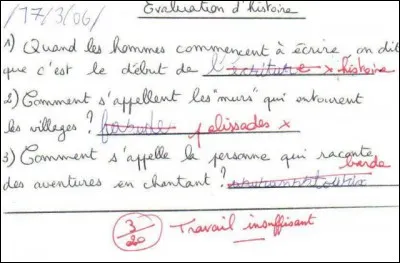 17/3/06/ Evaluation d'histoire
1) Quand les hommes commencent à écrire, on dit
que c'est le début de l'écriture x histoire
2) Comment s'appellent les "murs" qui entourent
les villages ? palissades x
3) Comment s'appelle la personne qui raconte
barde
des aventures en chantant ?
3/20 Travail insuffisant